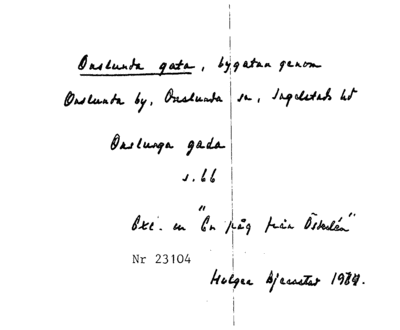 Onslunda gata, bygatan genom
Onslunda by, Onslunda sn, Ingelstads hd
Onslunga gada
s. 66
Exc. ur "En påg från Österlén"
Nr 23104
Holger Bjerstar 1987.